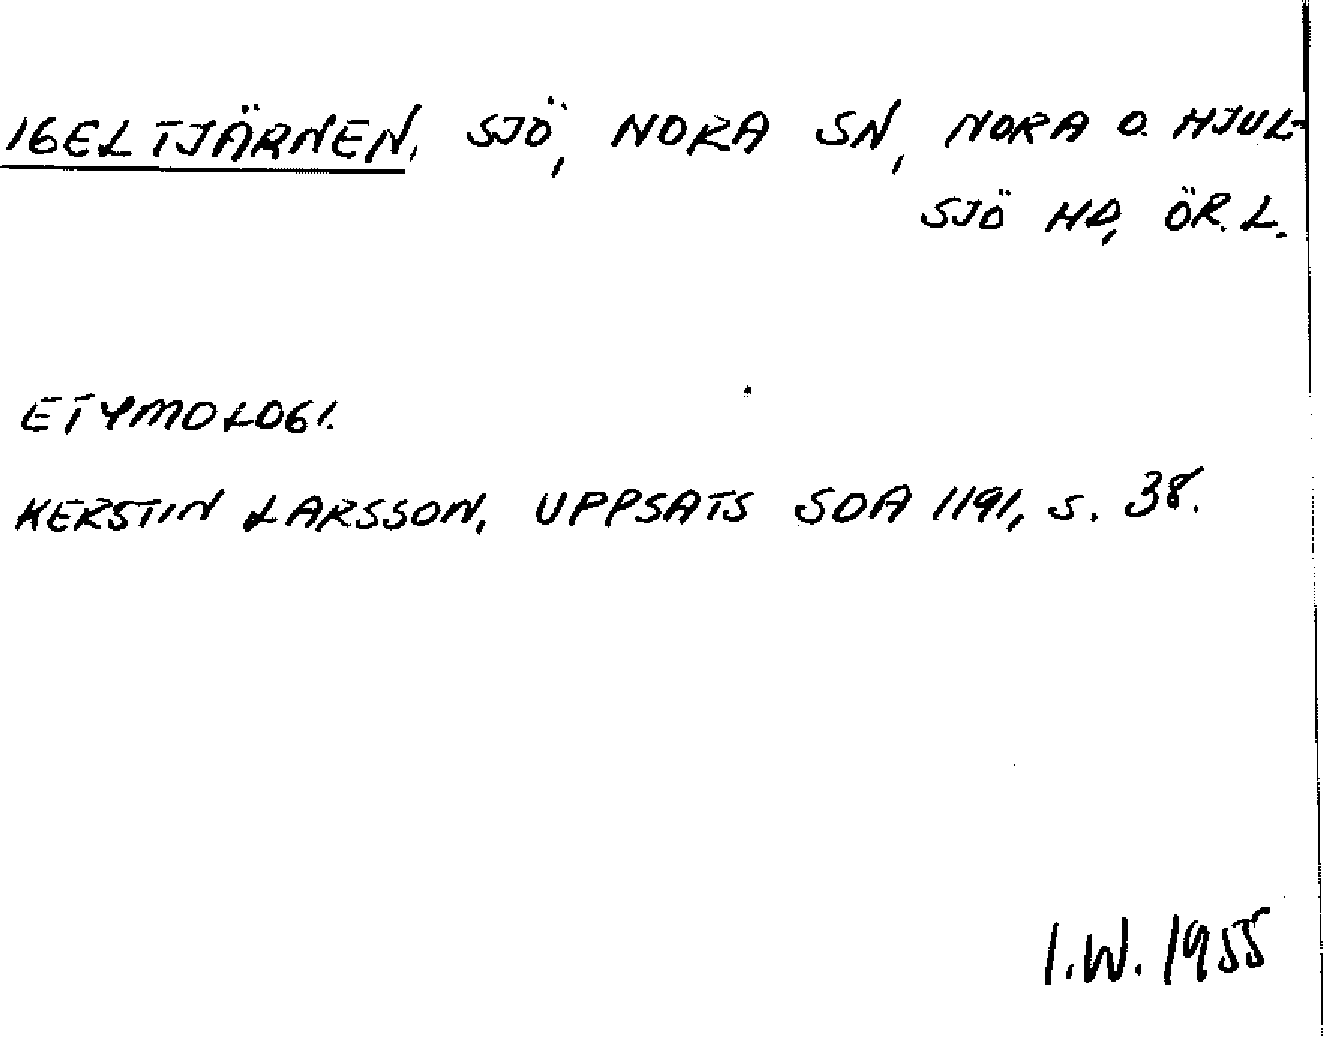 IGELTJÄRNEN, SJÖ, NORA SN, NORA O. HJUL-
SJÖ HD, ÖR. L.
ETYMOLOGI.
KERSTIN LARSSON, UPPSATS SOA 1191, S. 38.
I.W. 1955